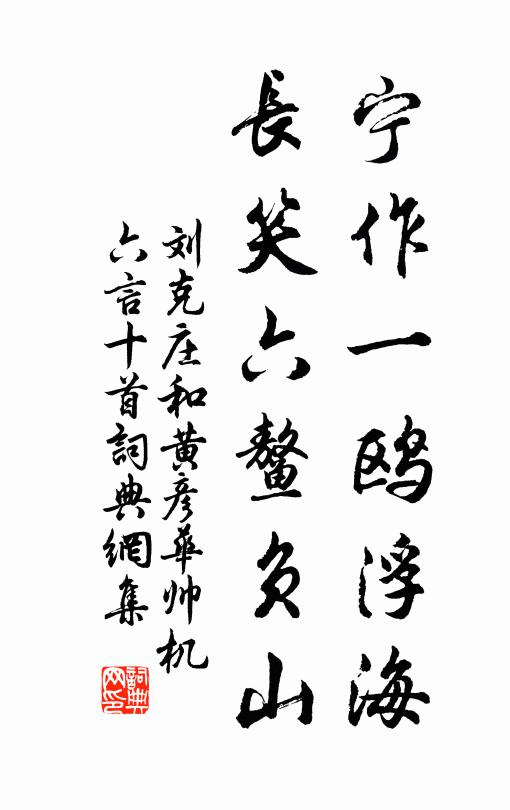 宁作一鸥浮海
長笑六鳌负山
刘克庄和黄彦华帅机
六言十首詞典網集
詞典网印